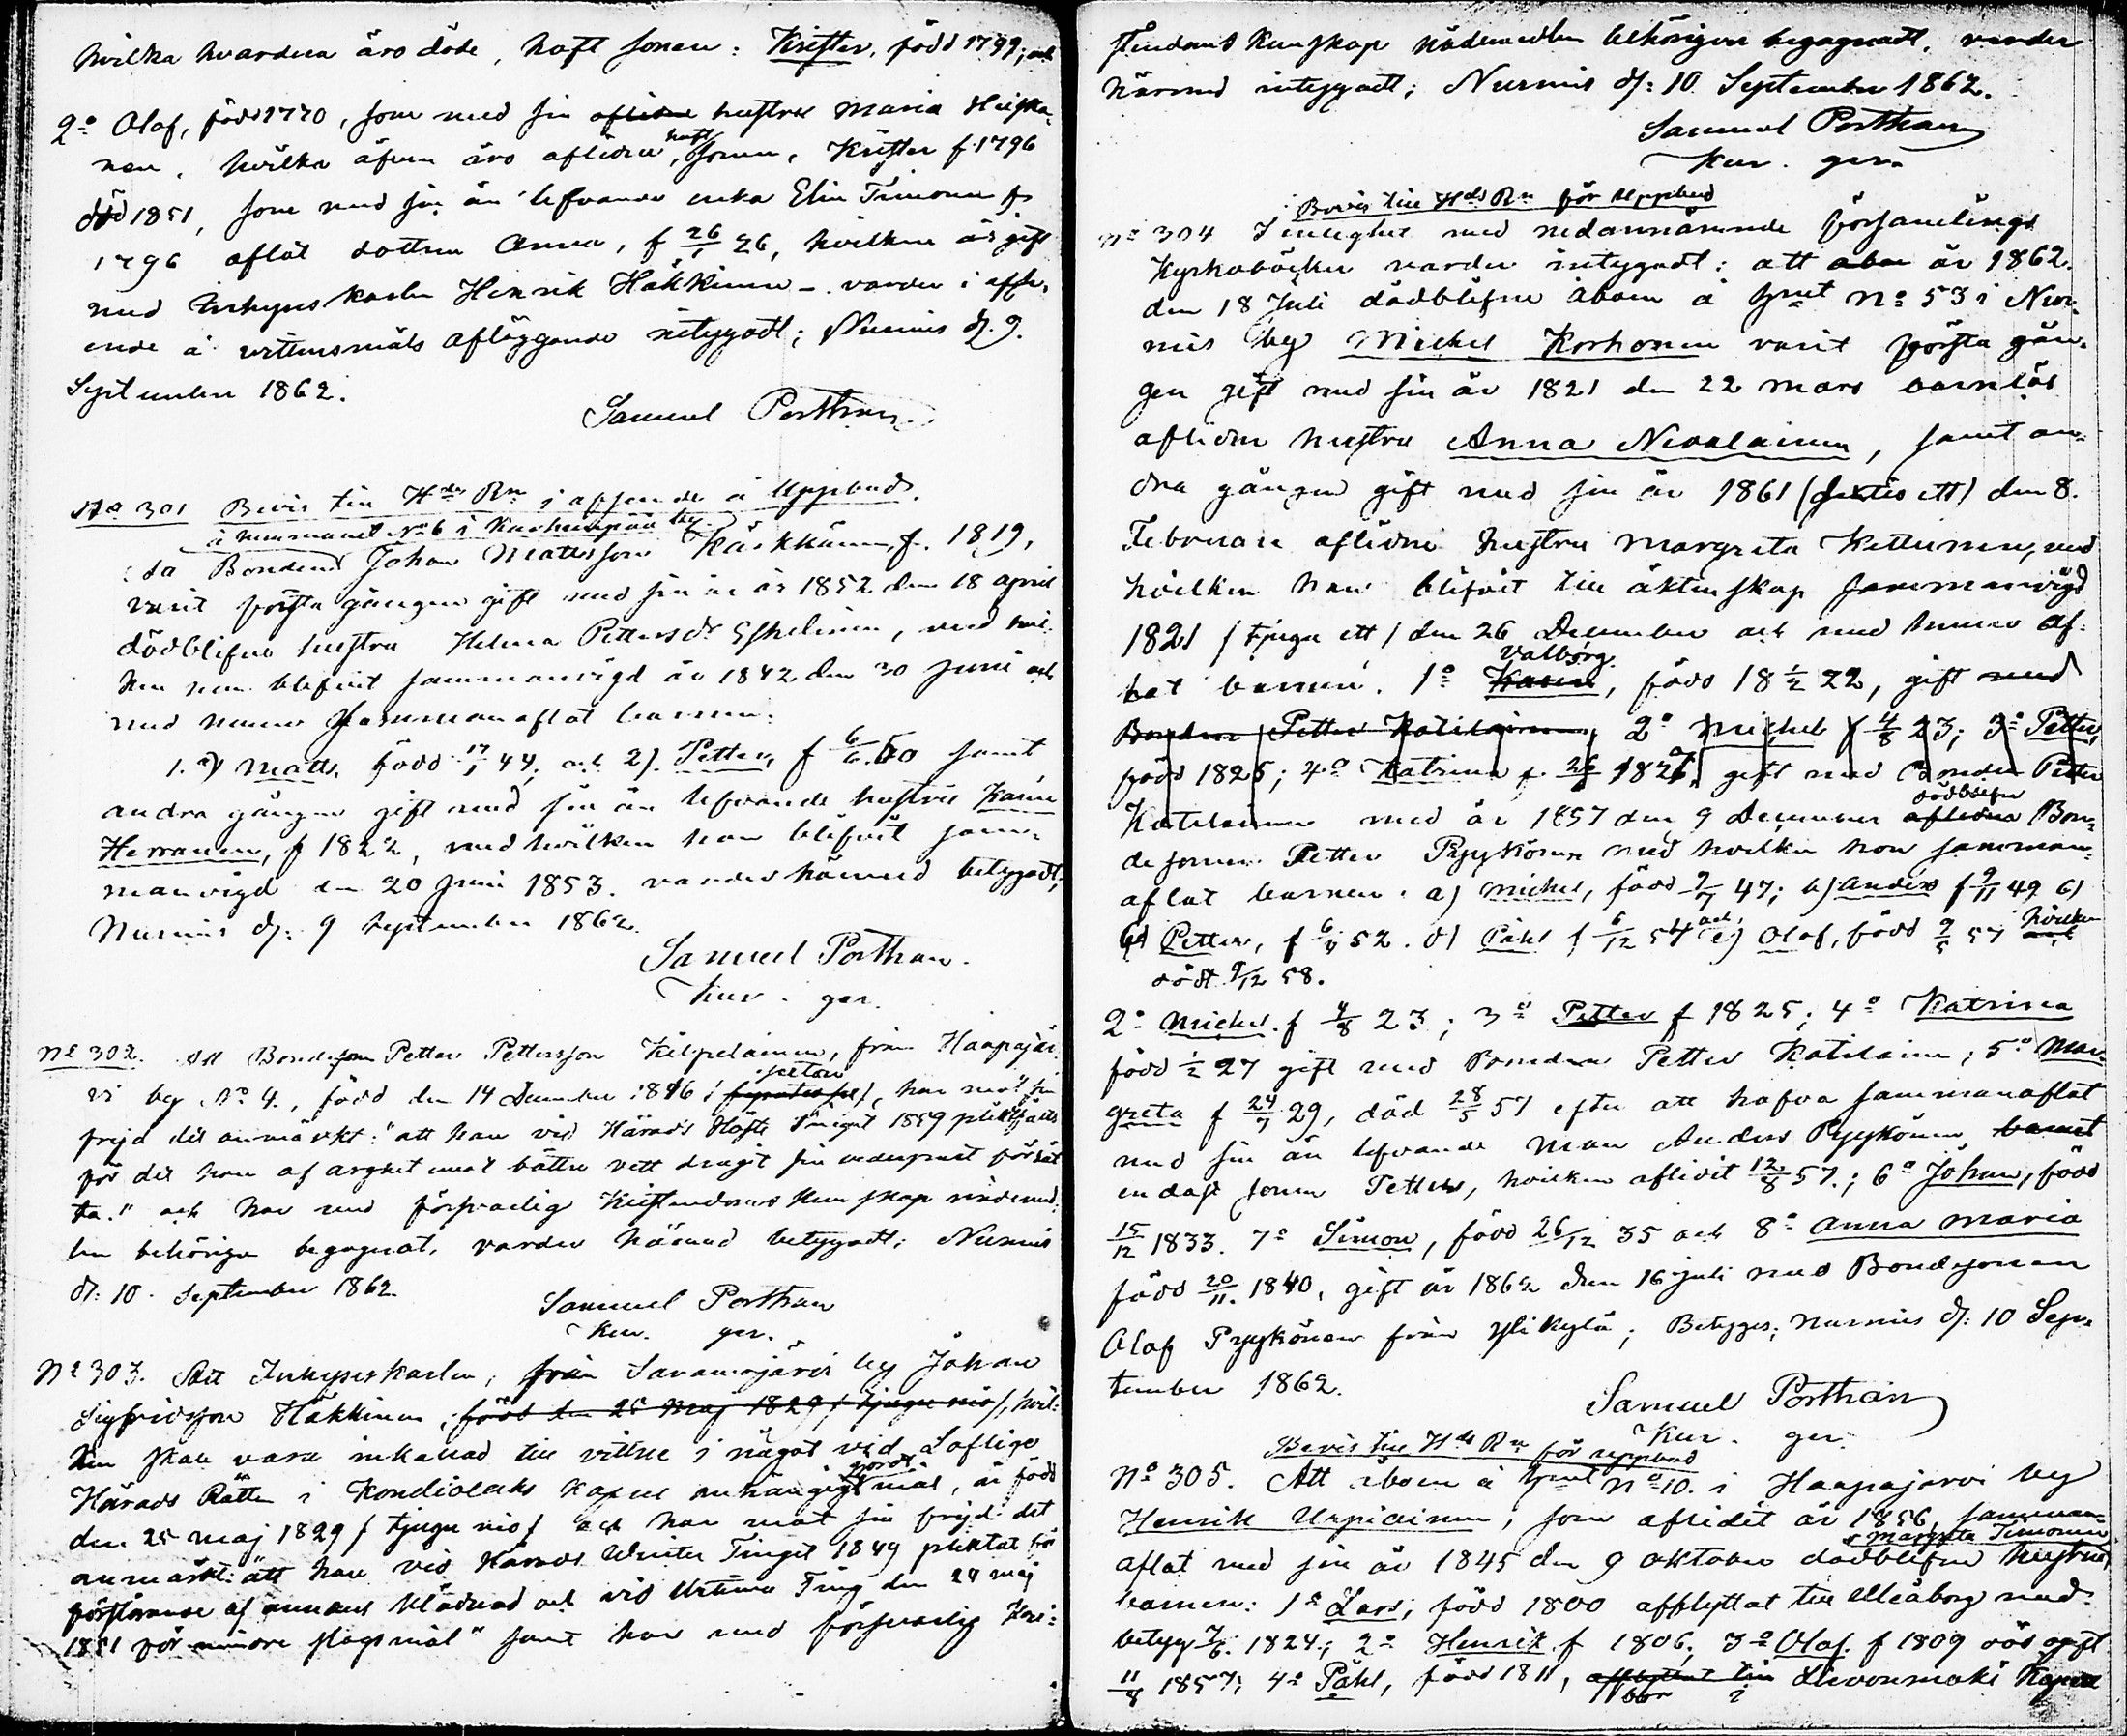 hvilka hvardera äro döde, haft sonen: Krister, född 1799; och
2o Olof, född 1770, som med sin aflidna hustru Maria Heiska-
nen, hvilka äfven äro aflidne, haft sonen, Krister f. 1796
död 1851, som med sin än lefvande enka Elin Timonen f.
1796 aflat dottren Anna, f 26/1 26, hvilken är gift
med Inhyses karlen Henrik Häkkinen - varder i afse-
ende å vittnesmåls afläggande intygadt; Nurmis d. 9.
September 1862.
Samuel Porthan
No 301 Bevis till Hds Rn i afseende å Uppbud.
å hemmanet No 6 i by
Bonden Johan Mattsson Räsänen, f. 1819,
varit första gången gift med sin år 1852 den 18 april
dödblifne hustru Helena Pettersdr Eskelinen, med hvil-
ken han blifvit sammanvigd år 1842 den 30 Juni och
med henne sammanaflat barnen:
1.) Matts, född 17/1 44, och 2). Petter, f 6/6 50 samt
andra gången gift med sin än lefvande hustru Karin
Herranen, f 1822, med hvilken han blifvit sam-
manvigd den 20 Juni 1853. varder härmed betygadt;
Nurmis d: 9 September 1862
Samuel Porthan.
Kur. ger.
No 302. Att Bondeson Petter Pettersson Kilpelainen, från Haapajär-
vi by No 4., född den 14 December 1816 / sexton /, har mot sin
frejd det anmärkt: "att han vid Härads Höste Tinget 1859 pliktfälts
för det han af arghet mot bättre vett dragit sin underskrift försat
ta." och har med försvarlig Kristendoms kunskap nådemed-
len behörigen begagnat, varder härmed betygadt; Nurmis
d: 10. September 1862.
Samuel Porthan
Kur. ger.
No 303. Att Inhyseskarlen, från Saramojärvi by Johan
Sigfridsson Häkkinen, född den 25 Maj 1829 / tjugu nio /, hvil-
ken skall vara inkallad till vittne i något vid Loflige
Härads Rätten i Kondiolaks Kapell anhängigt gjordt mål, är född
den 25 maj 1829 / tjugu nio / och har mot sin frejd det
anmärkt: "att han vid Härads Winter Tinget 1849 pliktat för
förstörande af annans klädnad och vid Urtima Ting den 24 maj
1851 för mindre slagsmål" samt har med försvarlig Kri-
stendoms kunskap nådemedlen behörigen begagnadt, varder
härmed intygadt; Nurmis d: 10 September 1862.
Samuel Porthan
Kur. ger.
Bevis till Hds Rn för Uppbud
No 304 I enlighet med nedannämnde församlings
Kyrkoböcker varder intygadt: att åbon år 1862
den 18 Juli dödblifne åboen å hmt No 53 i Nur-
mis by Michel Korhonen varit första gån-
gen gift med sin år 1821 den 22 mars barnlös
aflidne hustru Anna Nevalainen, samt an-
dra gången gift med sin år 1861 (sextio ett) den 8.
Februari aflidne hustru Margreta Kettunen, med
hvilken han blifvit till äktenskap sammanvigd
1821 / tjugu ett / den 26 December och med henne af-
lat barnen. 1o Karin Valborg, född 18 1/2 22, gift med
Bonden Petter Katilainen, 2o Michel f 4/8 23; 3o Petter,
född 1825; 4o Katrina f. 1827, gift med Bonden Petter
Katilainen med år 1857 den 9 December aflidna dödblifne Bon-
desonen Petter Pyykönen med hvilken hon samman-
aflat barnen: a) Michel, född 9/7 47; b) Anders f 9/11 49 c)
Petter, f 6/4 52. d) Påhl f 6/12 54 och e) Olof, född 9/5 57 hvilken
dödt 9/12 58.
2o Michel f 4/8 23; 3o Petter f 1825; 4o Katrina
född 1/2 27 gift med Bonden Petter Katilainen; 5o Mar-
greta f 24/7 29, död 28/5 57 efter att hafva sammanaflat
med sin än lefvande man Anders Pyykönen barnet
endast sonen Petter, hvilken aflidit 12/8 57.; 6o Johan, född
15/12 1833. 7o Simon, född 26/12 35 och 8o Anna Maria
född 20/11. 1840, gift år 1862 den 16 juli med Bondesonen
Olof Pyykönen från Ylikylä; Betygas; Nurmis d: 10 Sep-
tember 1862.
Samuel Porthan
Kur. ger.
Bevis till Hds Rn för uppbud
No 305. Att åboen å hmt No 10. i Haapajärvi by
Henrik Urpiainen, som aflidit år 1856, samman-
aflat med sin år 1845 den 9 oktober dödblifne hustru Margreta Timonen
barnen: 1o Lars, född 1800 afflyttat till Uleåborg med
betyg 7/6. 1824; 2o Henrik f 1806; 3o Olof. f 1809 död ogift
11/8 1857; 4o Påhl, född 1811, afflyttat till bor i Lievonmäki Kapell